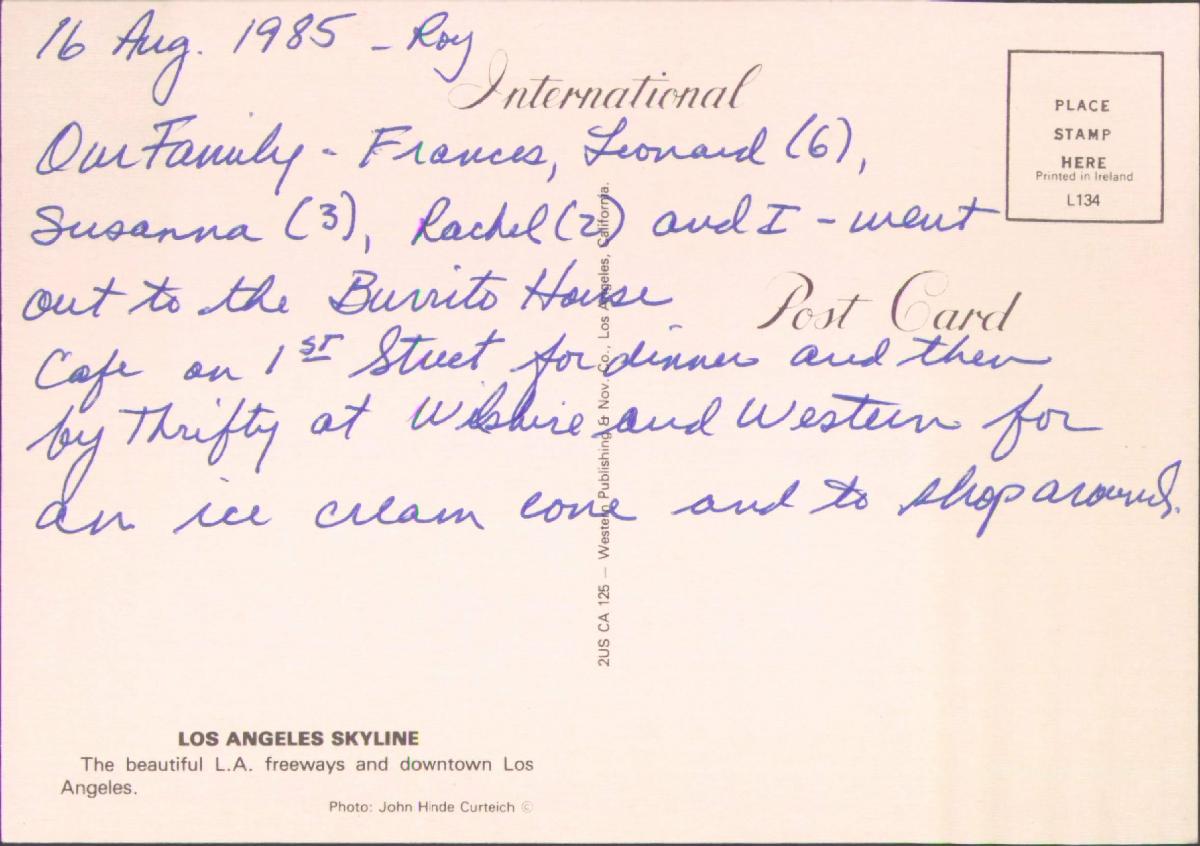 16 Aug. 1985 - Roy
International
Our Family - Frances, Leonard (6),
Susanna (3), Rachel (2) and I - went
out to the Burrito House
Cafe on 1ST Street for dinner and then
by Thrifty at Wilshire and Western for
an ice cream cone and to shop around.
PLACE
STAMP
HERE
Printed in Ireland
L134
Post Card
2US CA 125 — Western Publishing & Nov. Co., Los Angeles, California.
LOS ANGELES SKYLINE
The beautiful L.A. freeways and downtown Los
Angeles.
Photo: John Hinde Curteich ©